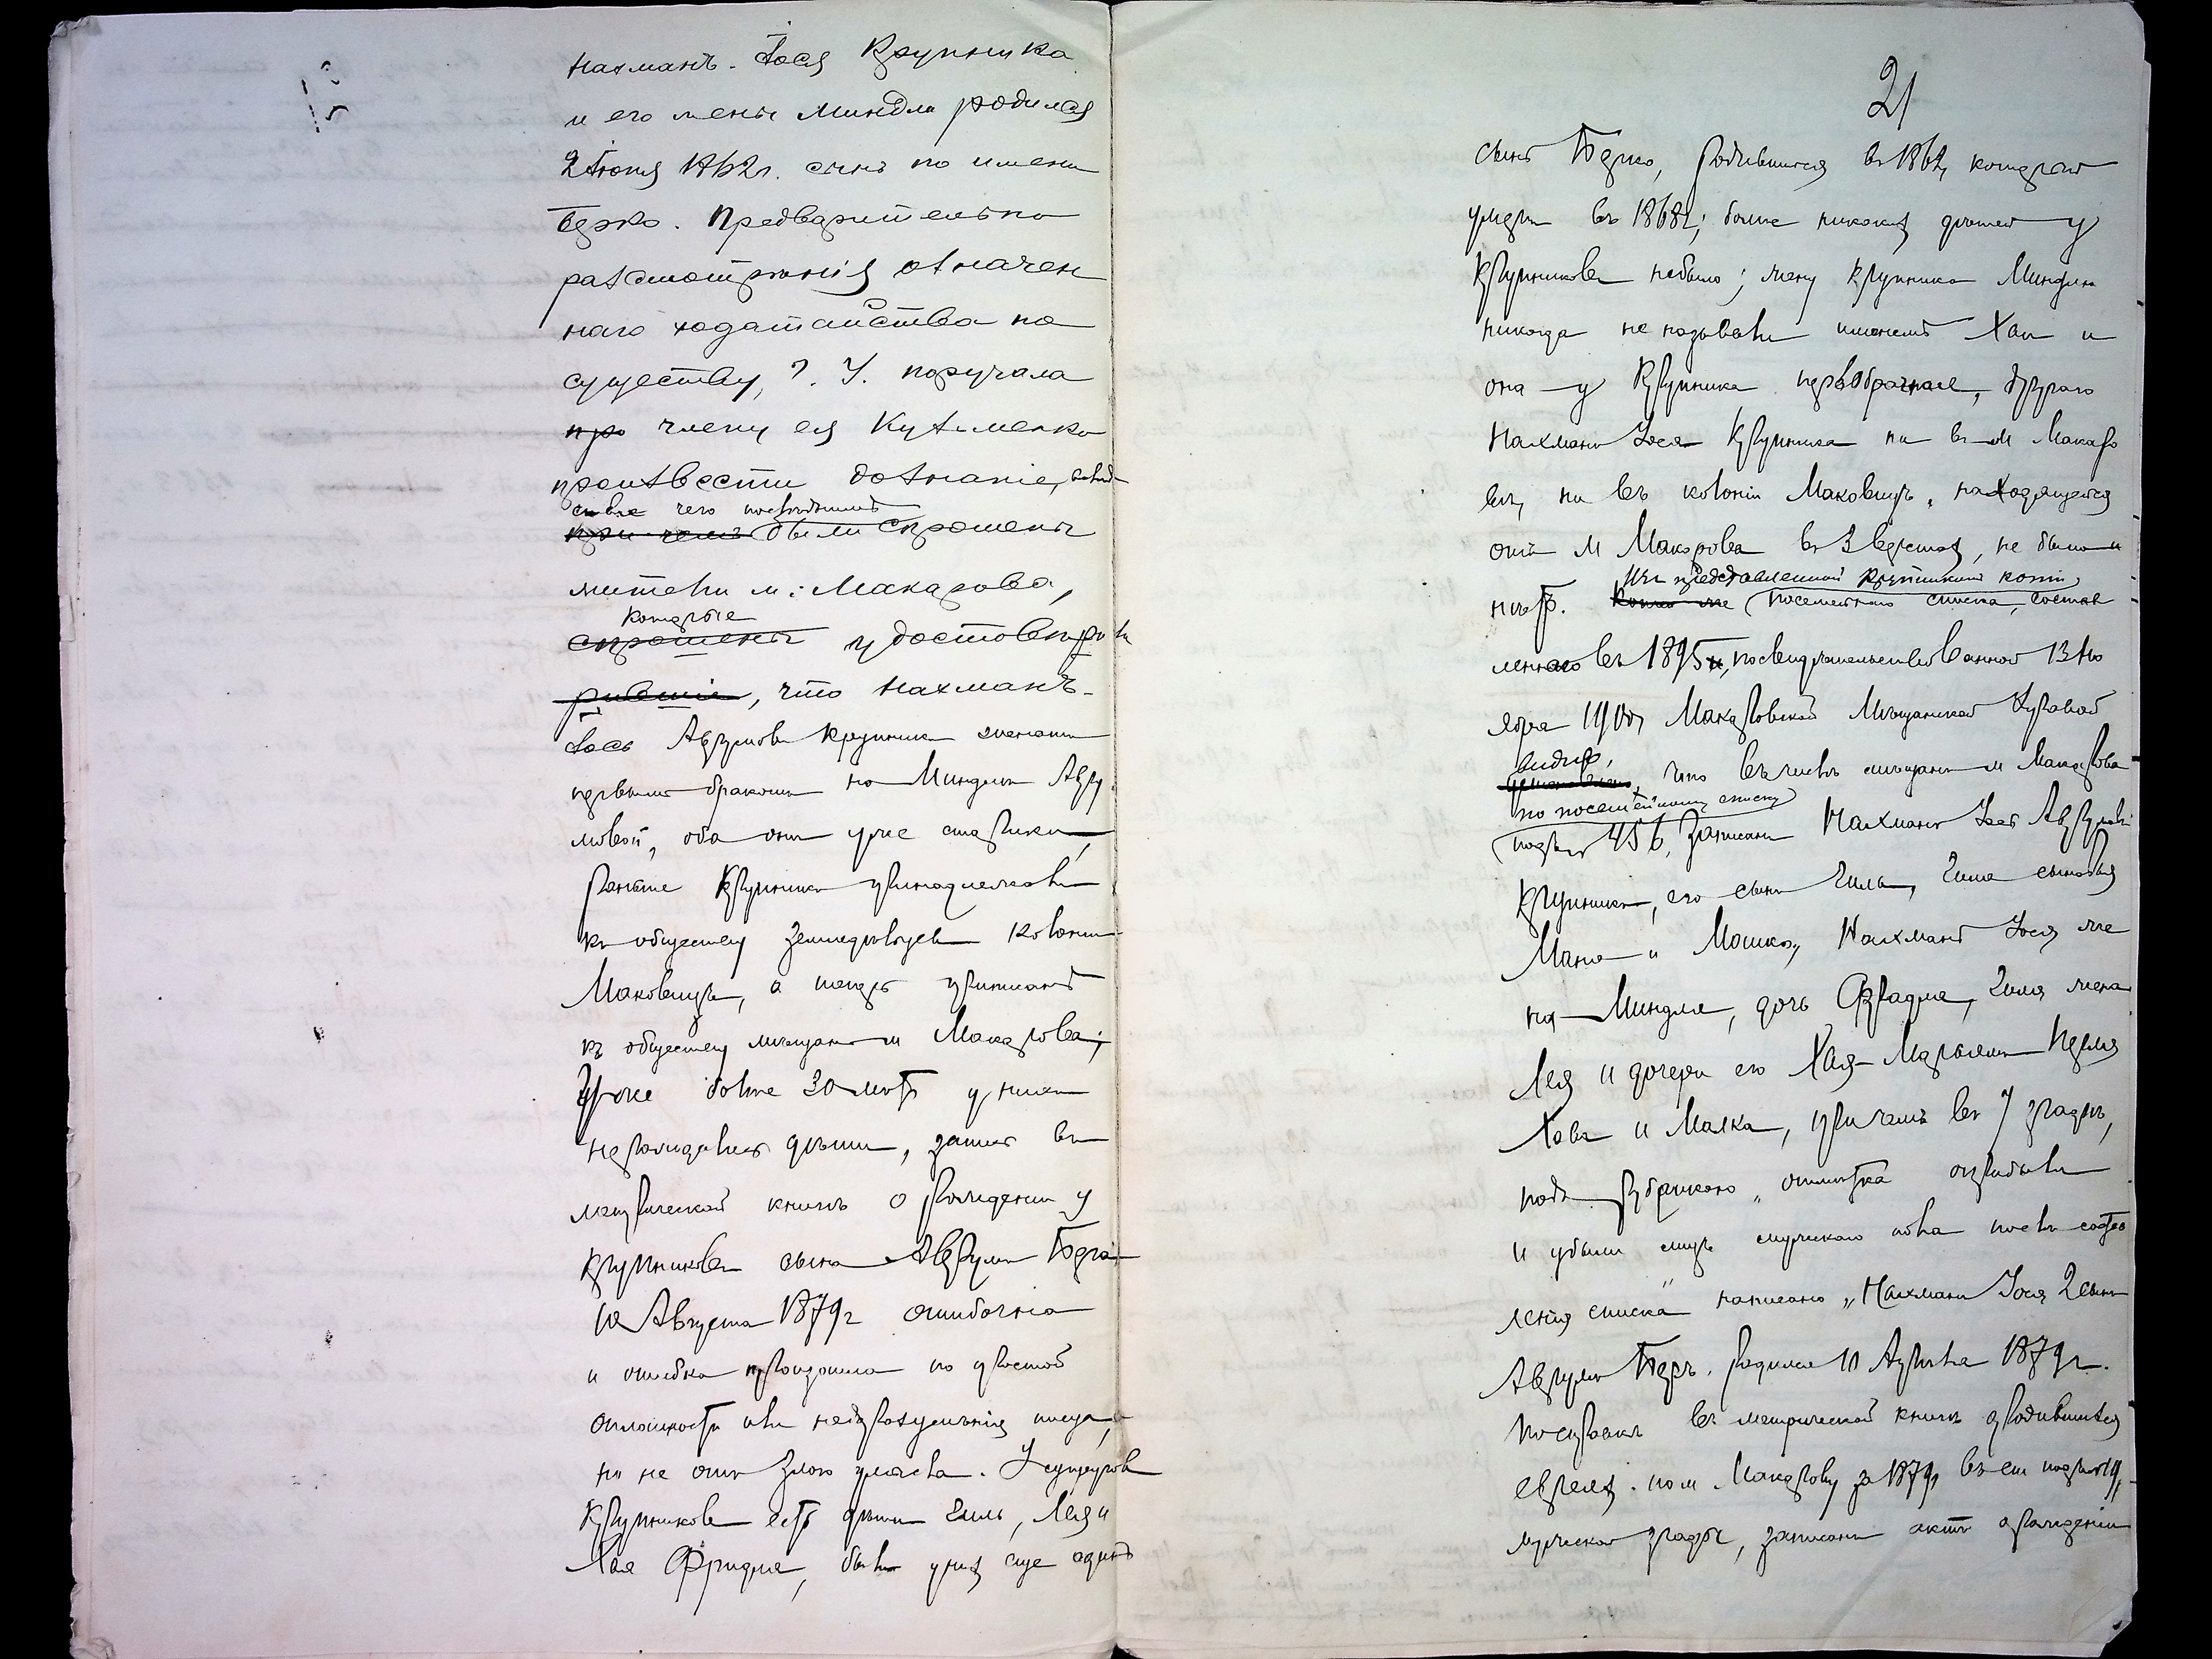 Нахманъ-Іося Крупника
и его жены Миндли родился
2 Іюня 1862 г. сынъ по имени
Берко. Предварительно
разсмотрѣнія означен
наго ходатайства по
существу, Г. У. поручала
про члену ея Кузьменко
произвести дознаніе,
чего
при чемъ были спрошены
жители м: Макарова,
которые
спрошены удостовѣрили
рившіе, что Нахманъ-
Іось Аврумовъ Крупникъ женатъ
первымъ бракомъ на Миндли Авру
мовой, оба они уже старики,
раньше Крупники принадлежали
къ обществу земледѣльцевъ колоніи
Маковище, а теперь приписанъ
къ обществу мѣщанъ м Макарова;
Уже болѣе 30 лѣтъ у нихъ
не рождались дѣти, запись въ
метрической книгѣ о рожденіи у
Крупниковъ сына Аврумъ Бера
10 Августа 1879 г ошибочна
и ошибка произошла по простой
оплошности или недоразумѣнія писца,
но не отъ злого умысла. У супруговъ
Крупниковъ есть дѣти Зиль, Лея и
Хая Фридма, былъ у нихъ еще одинъ
21
сынъ Берко, родившійся въ 1862, который
умеръ въ 1868 г; болѣе никакихъ дѣтей у
Крупниковъ не было; жену Крупника Миндлю
никогда не называли именемъ Хая и
она у Крупника первобрачная, другого
Нахмана Іося Крупника ни въ м Макаро
вѣ, ни въ колоніи Маковище, находящейся
отъ м Макарова въ 3 верстахъ, не было и
нѣтъ. Изъ представленной Крупникомъ копіи
Копіи же посемейнаго списка, состав
леннаго въ 1895 г, посвидѣтельствованной 13 Но
ября 1900 г Макаровской Мѣщанской Управой
видно,
установлено, что въ числѣ мѣщанъ м Макарова
по посемейному списку
подъ № 456, записанъ Нахманъ Іось Аврумовъ
Крупникъ, его сынъ Зиль, Зиля сыновья
Маня и Мошко, Нахмана Іося же
на Миндля, дочь Фрадля, Зиля жена
Лея и дочери его Хая-Марьямъ Перля
Хова и Малка, при чемъ въ 7 графѣ,
подъ рубрикою „отмѣтка о прибыли
и убыли лицъ мужскаго пола послѣ состав
ленія списка" написано „Нахмана Іося 2 сынъ
Аврумъ Беръ, родился 10 Августа 1879 г.
По справкѣ въ метрической книгѣ о родившихся
евреяхъ по м Макарову за 1879 г въ ст подъ № 19,
мужской графы, записанъ актъ о рожденіи